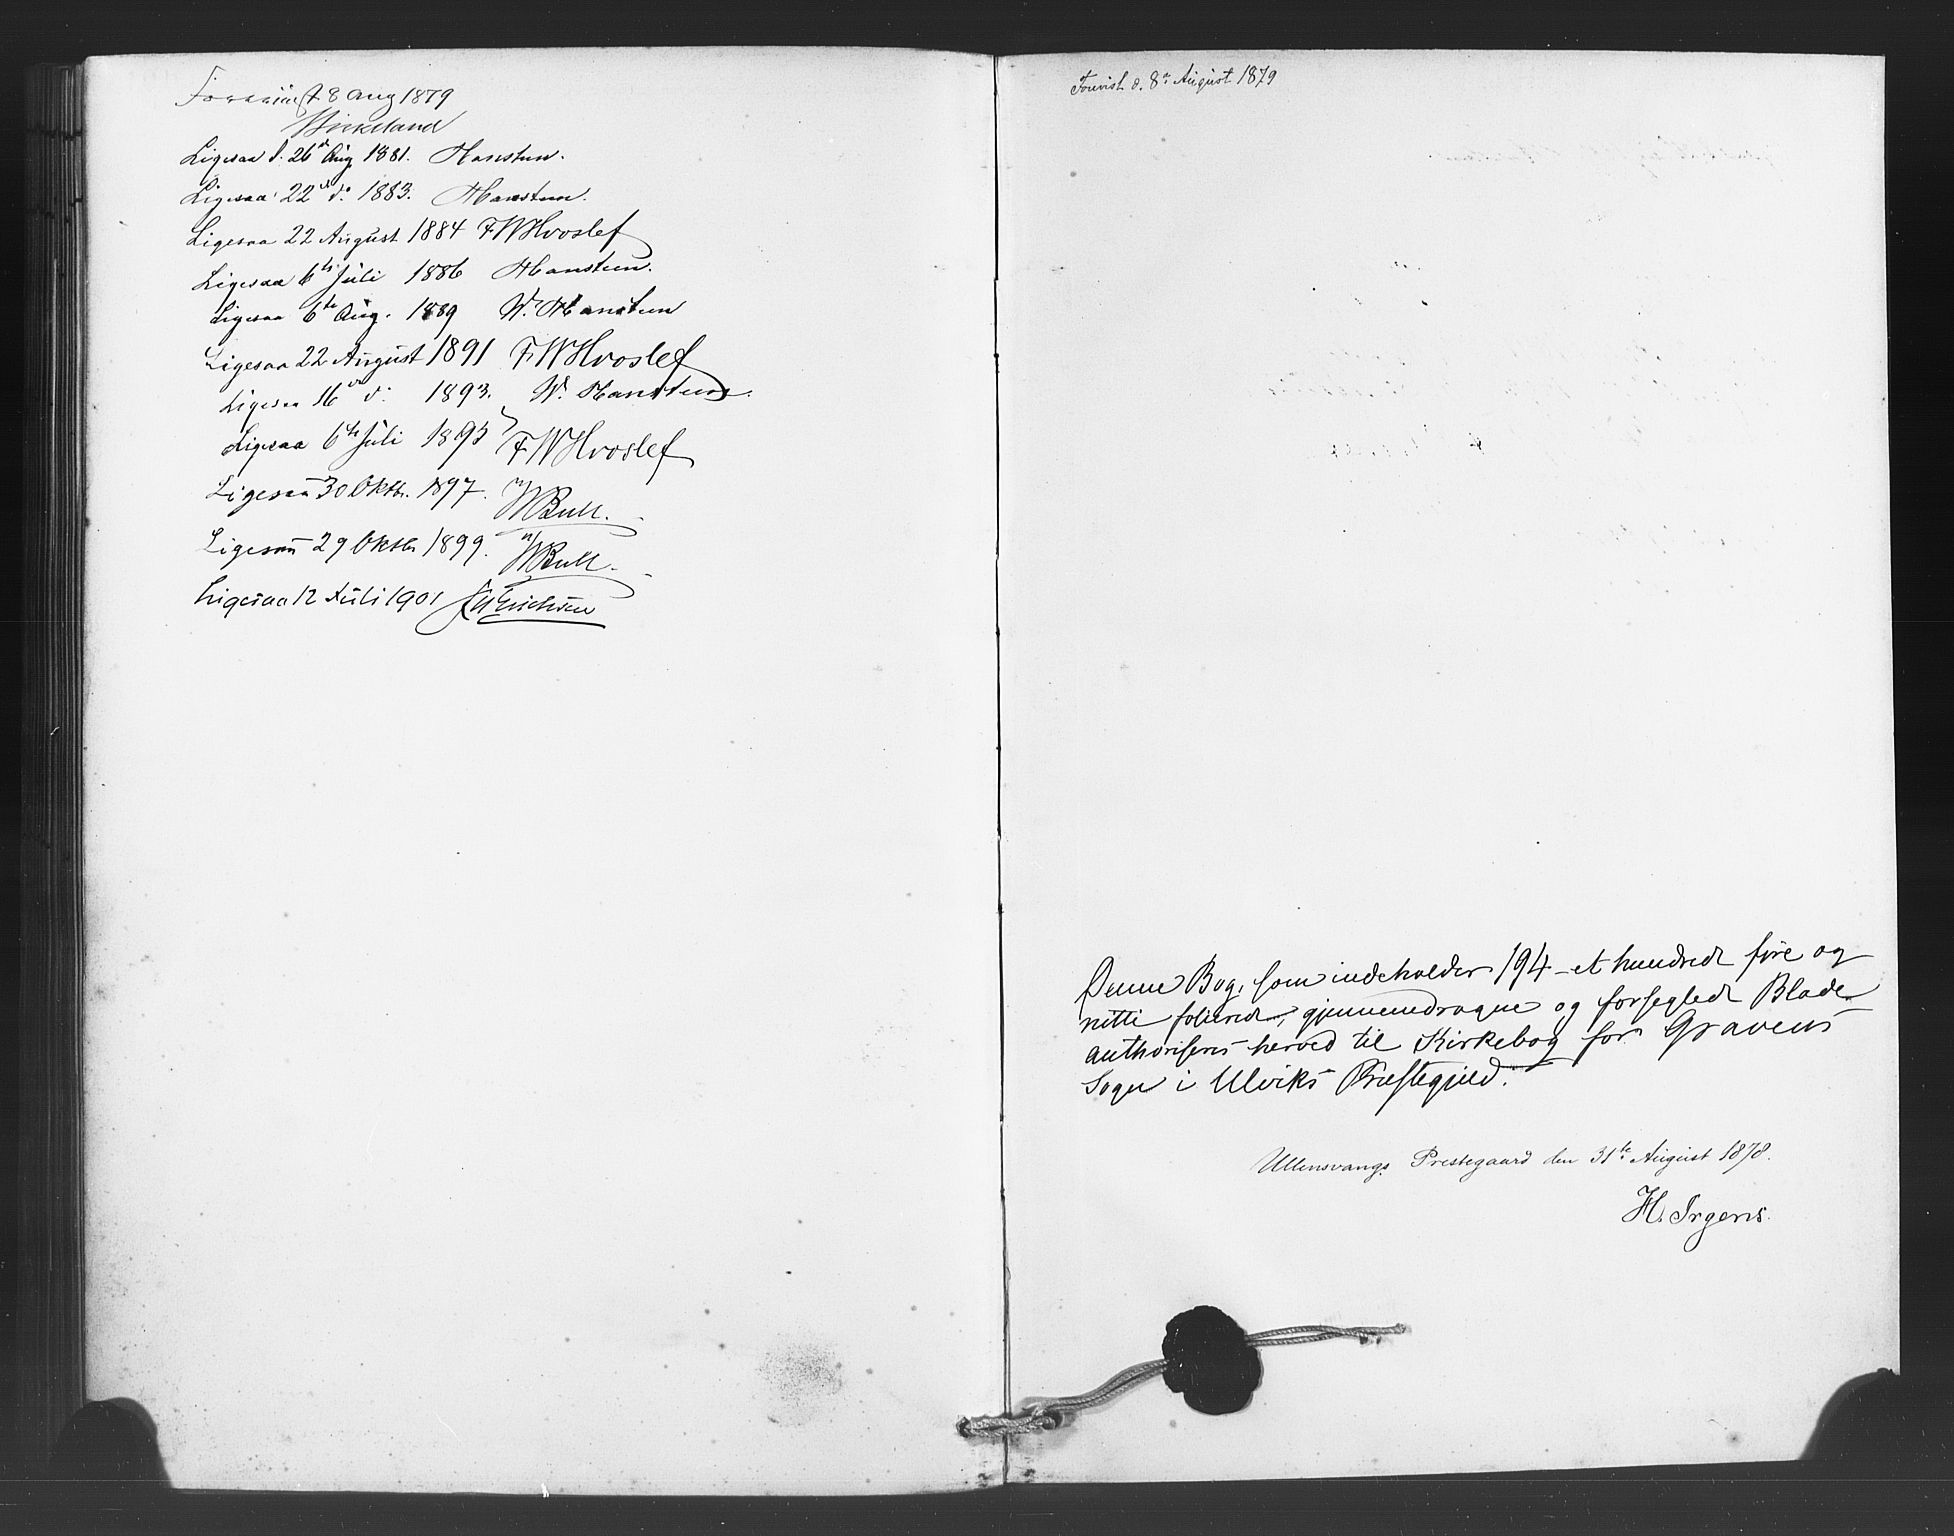 Forevist 8 Aug 1879
Birkeland
Ligesaa d. 26de Aug 1881. Hansteen.
Ligesaa 22de do 1883. Hansteen.
Ligesaa 22 August 1884 F W Hvoslef
Ligesaa 6te Juli 1886 Hansteen.
Ligesaa 6te Aug. 1889 W. Hansteen
Ligesaa 22 August 1891 F. W Hvoslef
Ligesaa 16de d: 1893. W. Hansteen.
Ligesaa 6te Juli 1895 F W Hvoslef
Ligesaa 30 Oktbr. 1897. Bull.
Ligesaa 29 Oktbr 1899. Bull.
Ligesaa 12 Juli 1901
Forevist d. 8de August 1879
Denne Bog, som indeholder 194 - et hundrede fire og
nitti folierede, gjennemdragne og forseglede Blade
authoriseres herved til Kirkebog for Gravens
Sogn i Ulviks Præstegjeld.
Ullensvangs Prestegaard den 31te August 1878.
H. Irgens.